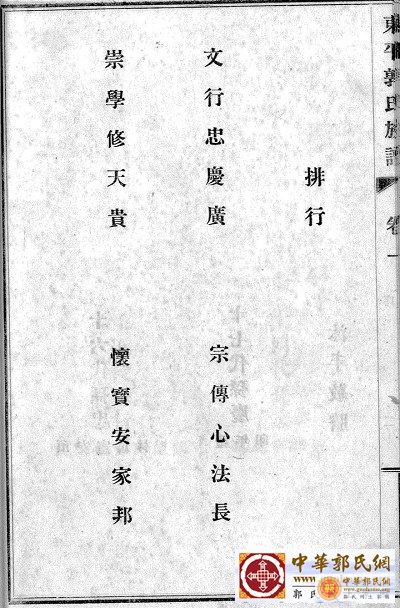 東平郭氏族譜
卷一
排行
文行忠慶廣 宗傳心法長
崇學修天貴 懷寶安家邦
中華郭氏網